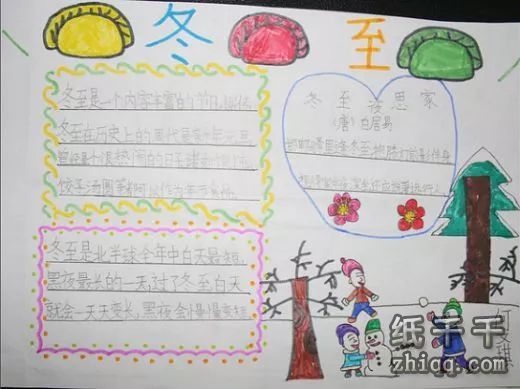 冬至
冬至是一个内容丰富的节日,
冬至在历史上的周代是新年元旦,
曾经是个很热闹的日子
饺子汤圆等都可以作为年节食物
冬至夜思家
(唐)白居易
邯郸驿里逢冬至抱膝灯前影伴身
想得家中夜深坐还应说着远行人
冬至是北半球全年中白天最短,
黑夜最长的一天,过了冬至白天
就会一天天变长,黑夜会慢慢变短
纸千千
zhiqq.com